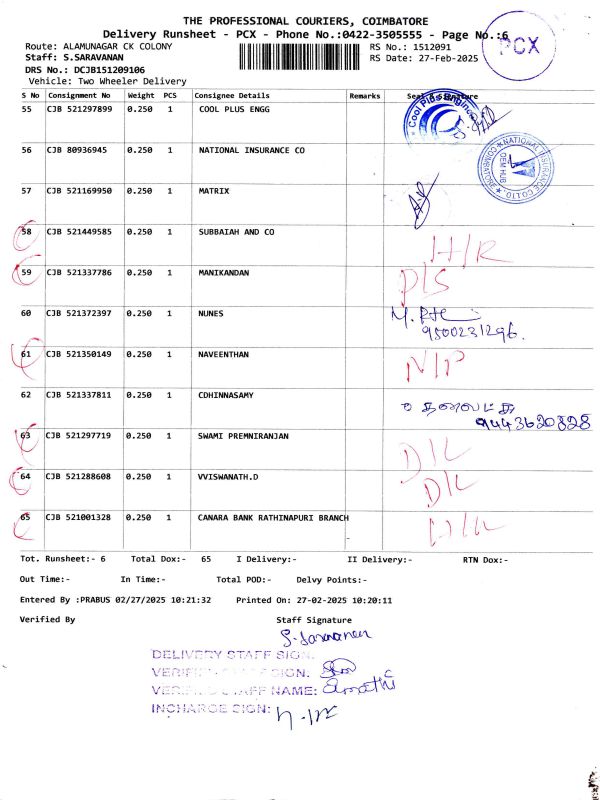 THE PROFESSIONAL COURIERS, COIMBATORE
Delivery Runsheet - PCX - Phone No.:0422-3505555 - Page No.:6
PCX
Route: ALAMUNAGAR CK COLONY
RS No.: 1512091
Staff: S.SARAVANAN
RS Date: 27-Feb-2025
DRS No.: DCJB151209106
Vehicle: Two Wheeler Delivery
S No Consignment No Weight PCS Consignee Details Remarks Seal & Signature
55 CJB 521297899 0.250 1 COOL PLUS ENGG
Cool Plus Engineering
56 CJB 80936945 0.250 1 NATIONAL INSURANCE CO
NATIONAL INSURANCE CO.LTD. COIMBATORE
OEM HUB
57 CJB 521169950 0.250 1 MATRIX
58 CJB 521449585 0.250 1 SUBBAIAH AND CO H/R
59 CJB 521337786 0.250 1 MANIKANDAN P/S
60 CJB 521372397 0.250 1 NUNES
9500231296.
61 CJB 521350149 0.250 1 NAVEENTHAN N/P
62 CJB 521337811 0.250 1 CDHINNASAMY
9443620828
63 CJB 521297719 0.250 1 SWAMI PREMNIRANJAN D/L
64 CJB 521288608 0.250 1 VVISWANATH.D D/L
65 CJB 521001328 0.250 1 CANARA BANK RATHINAPURI BRANCH
Tot. Runsheet:- 6 Total Dox:- 65 I Delivery:- II Delivery:- RTN Dox:-
Out Time:- In Time:- Total POD:- Delvy Points:-
Entered By :PRABUS 02/27/2025 10:21:32 Printed On: 27-02-2025 10:20:11
Verified By Staff Signature
S. Saravanan
DELIVERY STAFF SIGN:
SIGN:
STAFF NAME:
INCHARGE SIGN: